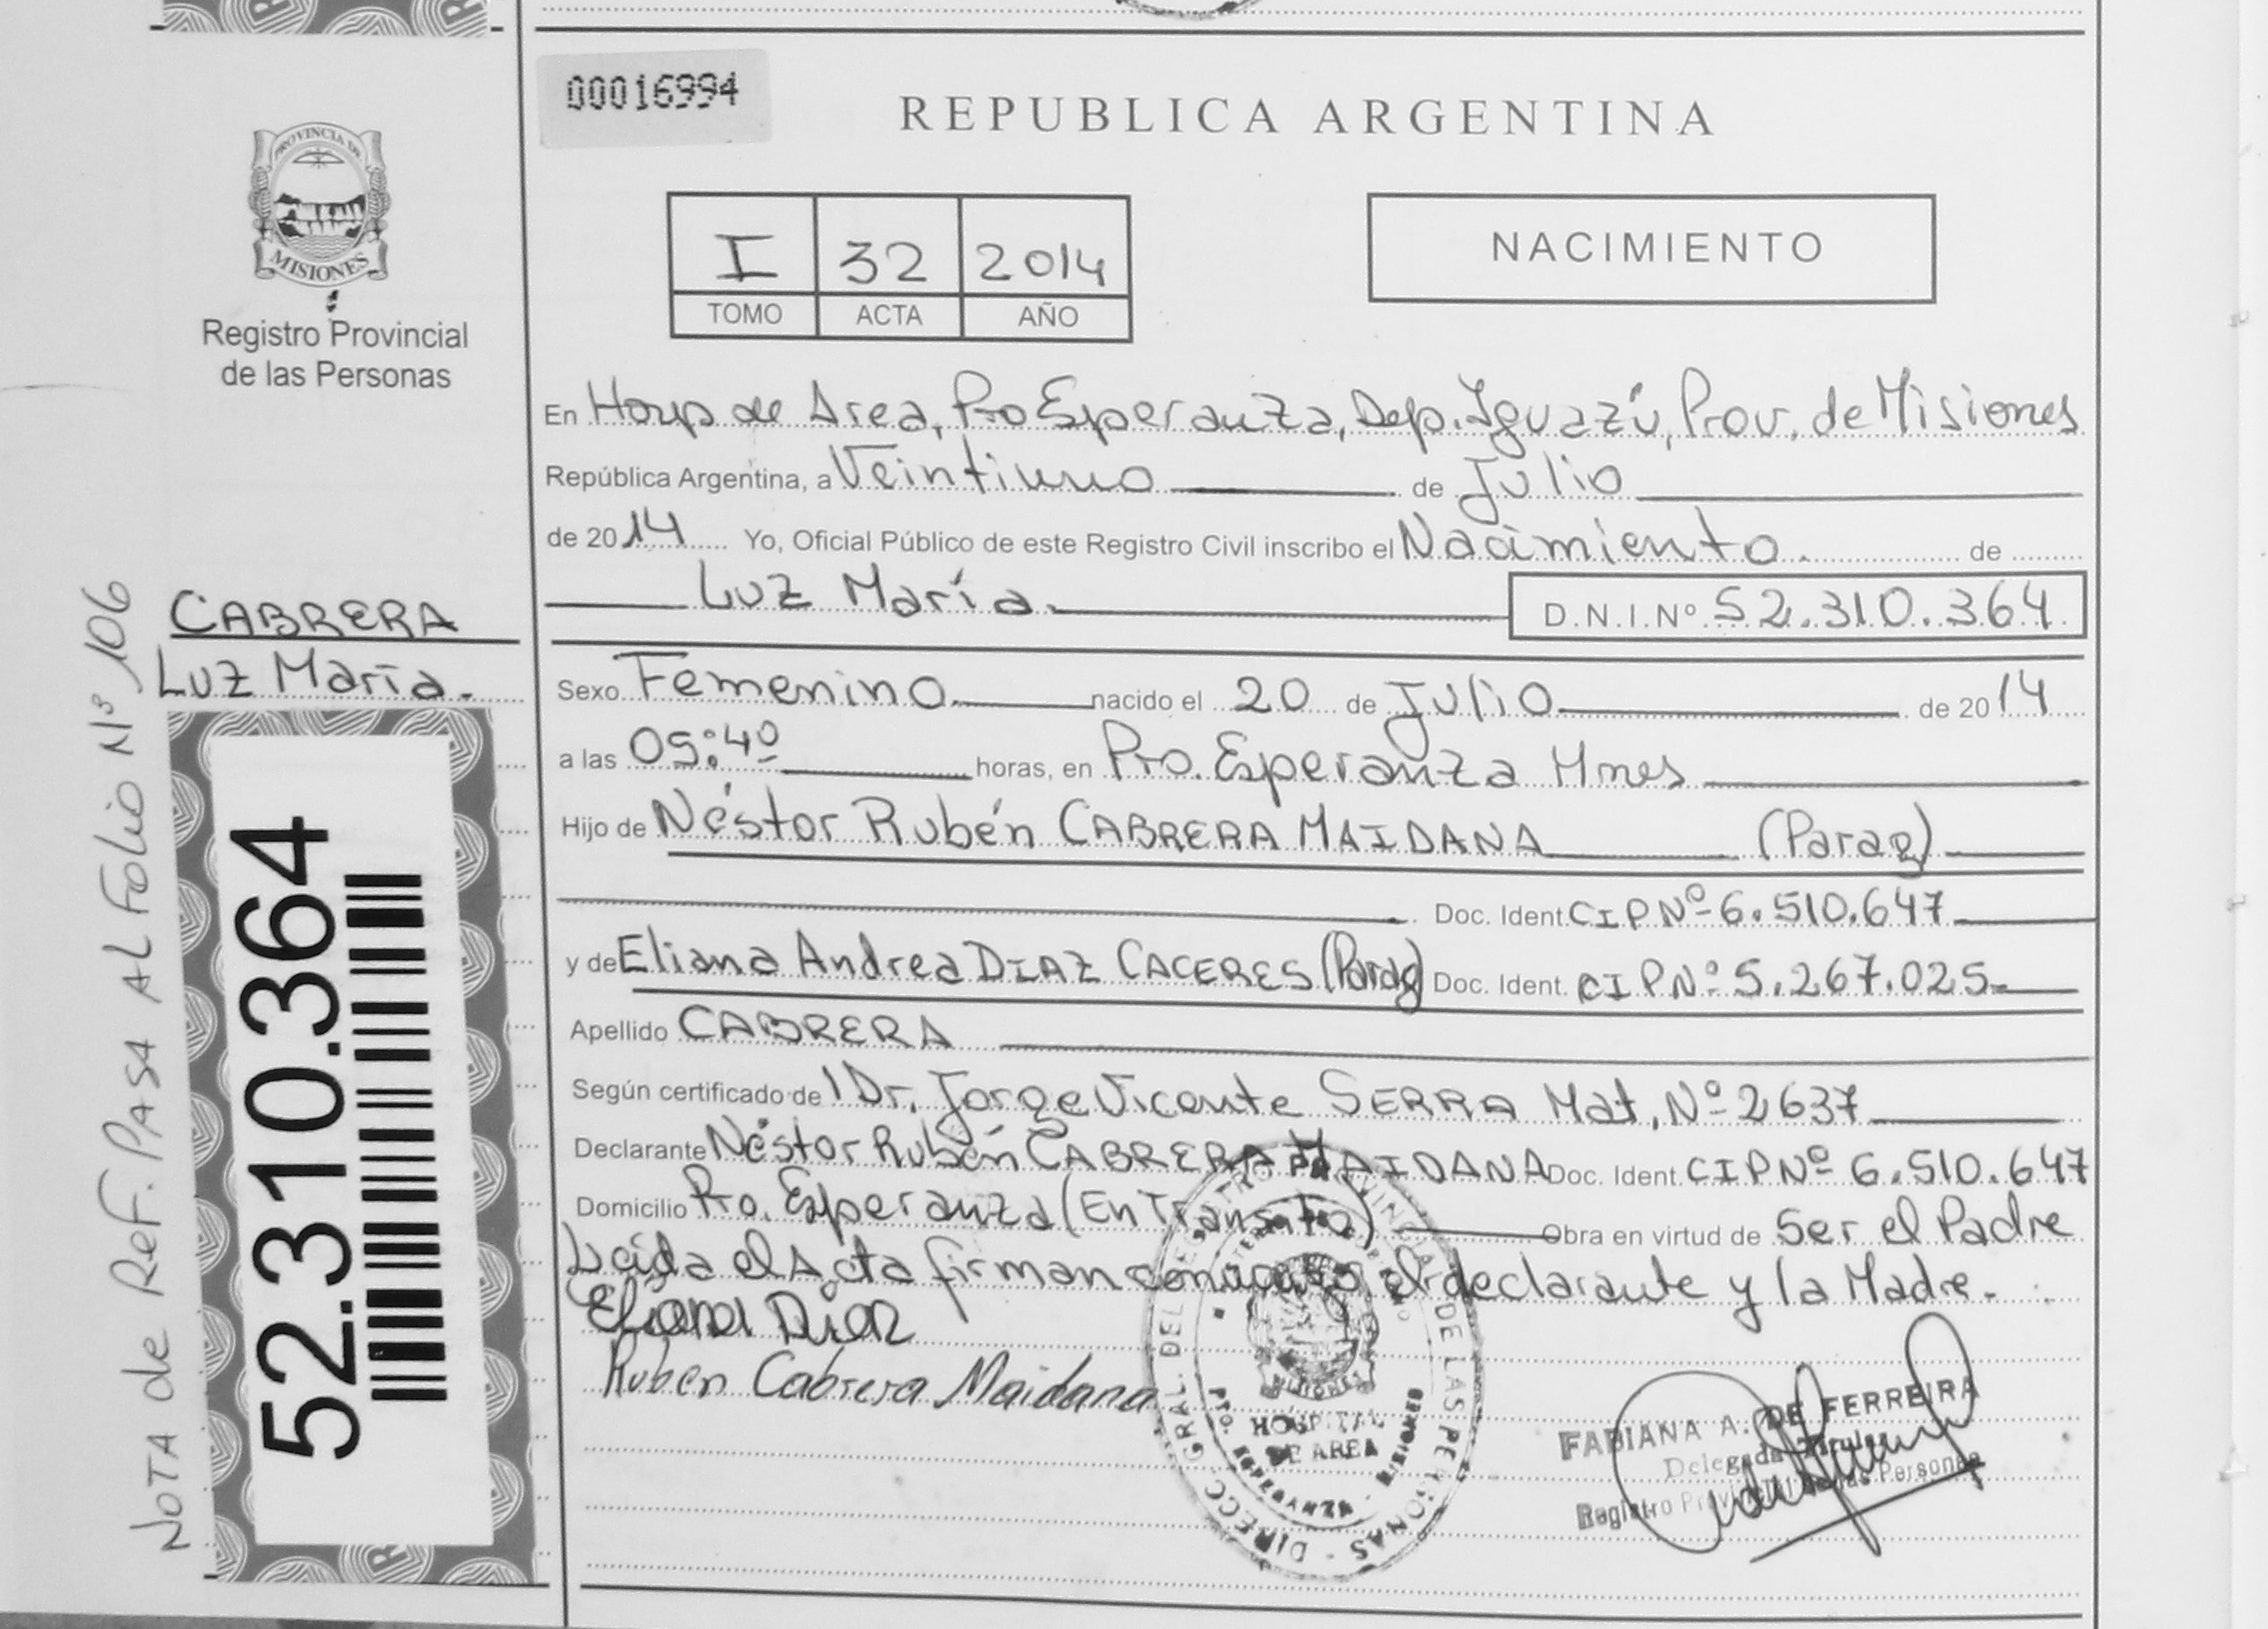 00016994
REPUBLICA ARGENTINA
PROVINCIA DE
MISIONES
Registro Provincial
de las Personas
I 32 2014
TOMO ACTA AÑO
NACIMIENTO
En Hosp de Area, Pto Esperanza, Dep. Iguazú, Prov. de Misiones
República Argentina, a Veintiuno de Julio
de 2014 Yo, Oficial Público de este Registro Civil inscribo el Nacimiento. de
Luz María. D.N.I.Nº 52.310.364
CABRERA
Luz María.
NOTA de REF. PASA AL FOLIO Nº 106
52.310.364
Sexo Femenino nacido el 20 de Julio de 2014
a las 05:40 horas, en Pto. Esperanza Mnes
Hijo de Néstor Rubén CABRERA MAIDANA (Parag)
Doc. Ident. CIPNº 6.510.647
y de Eliana Andrea DIAZ CACERES (Parag) Doc. Ident. CIPNº 5.267.025
Apellido CABRERA
Según certificado de 1 Dr. Jorge Vicente SERRA Mat. Nº 2637
Declarante Néstor Rubén CABRERA MAIDANA Doc. Ident. CIPNº 6.510.647
Domicilio Pto. Esperanza (En Transito) Obra en virtud de Ser el Padre
Leida el Acta firman conmigo el declarante y la Madre.
Eliana Diaz
Ruben Cabrera Maidana
DIRECC. GRAL. DEL REGISTRO PROVINCIAL DE LAS PERSONAS
HOSPITAL
DE AREA
PTO. ESPERANZA - MISIONES
FABIANA A. DE FERREIRA
Delegada Titular
Registro Provincial de las Personas